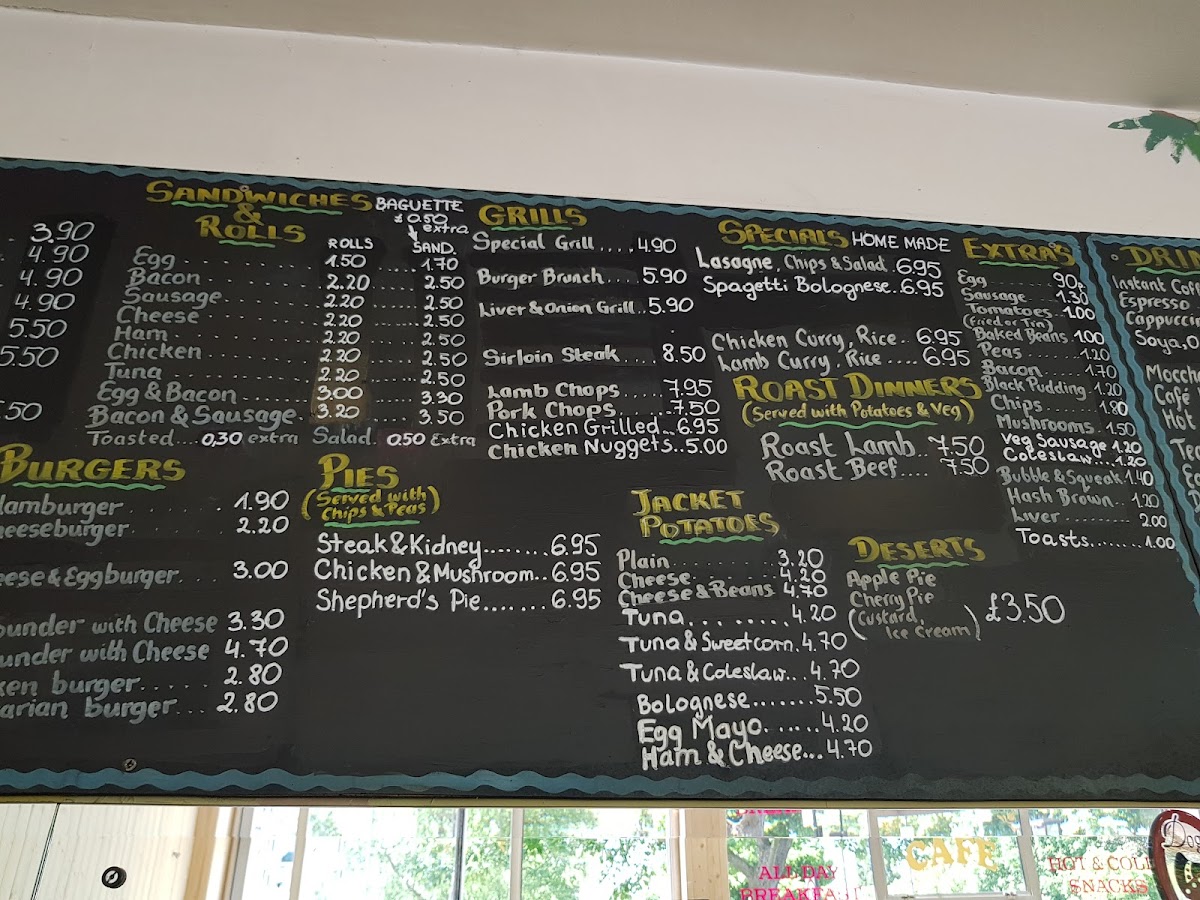 3.90
4.90
4.90
4.90
5.50
5.50
.50
SANDWICHES
&
ROLLS
BAGUETTE
£0.50
extra
ROLLS SAND.
Egg 1.50 1.70
Bacon 2.20 2.50
Sausage 2.20 2.50
Cheese 2.20 2.50
Ham 2.20 2.50
Chicken 2.20 2.50
Tuna 2.20 2.50
Egg & Bacon 3.00 3.30
Bacon & Sausage 3.20 3.50
Toasted.... 0,30 extra Salad. 0.50 Extra
GRILLS
Special Grill .... 4.90
Burger Brunch.... 5.90
Liver & Onion Grill.. 5.90
Sirloin Steak .... 8.50
Lamb Chops .... 7.95
Pork Chops ...... 7.50
Chicken Grilled.. 6.95
Chicken Nuggets.. 5.00
SPECIALS HOME MADE
Lasagne, Chips & Salad. 6.95
Spagetti Bolognese.. 6.95
Chicken Curry, Rice. 6.95
Lamb Curry, Rice .... 6.95
ROAST DINNERS
(Served with Potatoes & Veg)
Roast Lamb.. 7.50
Roast Beef.... 7.50
EXTRA'S
Egg 90p
Sausage 1.30
Tomatoes 1.00
(Fried or Tin)
Baked Beans 1.00
Peas 1.20
Bacon 1.70
Black Pudding. 1.20
Chips 1.80
Mushrooms 1.50
Veg Sausage 1.20
Coleslaw... 1.20
Bubble & Squeak 1.40
Hash Brown.. 1.20
Liver 2.00
Toasts........ 1.00
DRIN
Instant Coff
Espresso
Cappuccin
Soya, O
Moccha
Café
Hot
Tea
BURGERS
Hamburger 1.90
heeseburger 2.20
eese & Eggburger 3.00
ounder with Cheese 3.30
under with Cheese 4.70
ken burger..... 2.80
arian burger... 2.80
PIES
(Served with
Chips & Peas)
Steak & Kidney........ 6.95
Chicken & Mushroom.. 6.95
Shepherd's Pie....... 6.95
JACKET
POTATOES
Plain 3.20
Cheese 4.20
Cheese & Beans 4.70
Tuna........ 4.20
Tuna & Sweetcorn. 4.70
Tuna & Coleslaw... 4.70
Bolognese....... 5.50
Egg Mayo...... 4.20
Ham & Cheese... 4.70
DESERTS
Apple Pie
Cherry Pie
(Custard,
Ice Cream)
£3.50
ALL DAY
BREAKFAST
CAFE
HOT & COLD
SNACKS